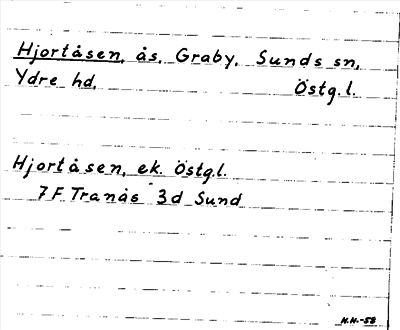 Hjortåsen, ås, Graby, Sunds sn,
Ydre hd, Östg.l.
Hjortåsen, ek. Östg.l.
7F Tranås 3d Sund
H.H.-58